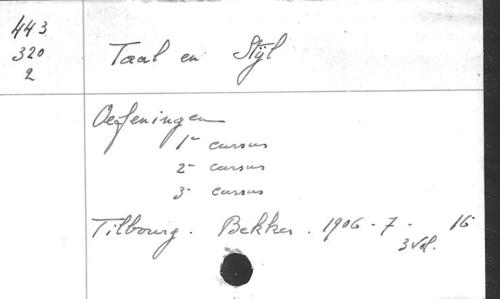 443
320
2
Taal en Stijl
Oefeningen
1e cursus
2e cursus
3e cursus
Tilbourg. Bekker. 1906-7. 16
3 Vol.